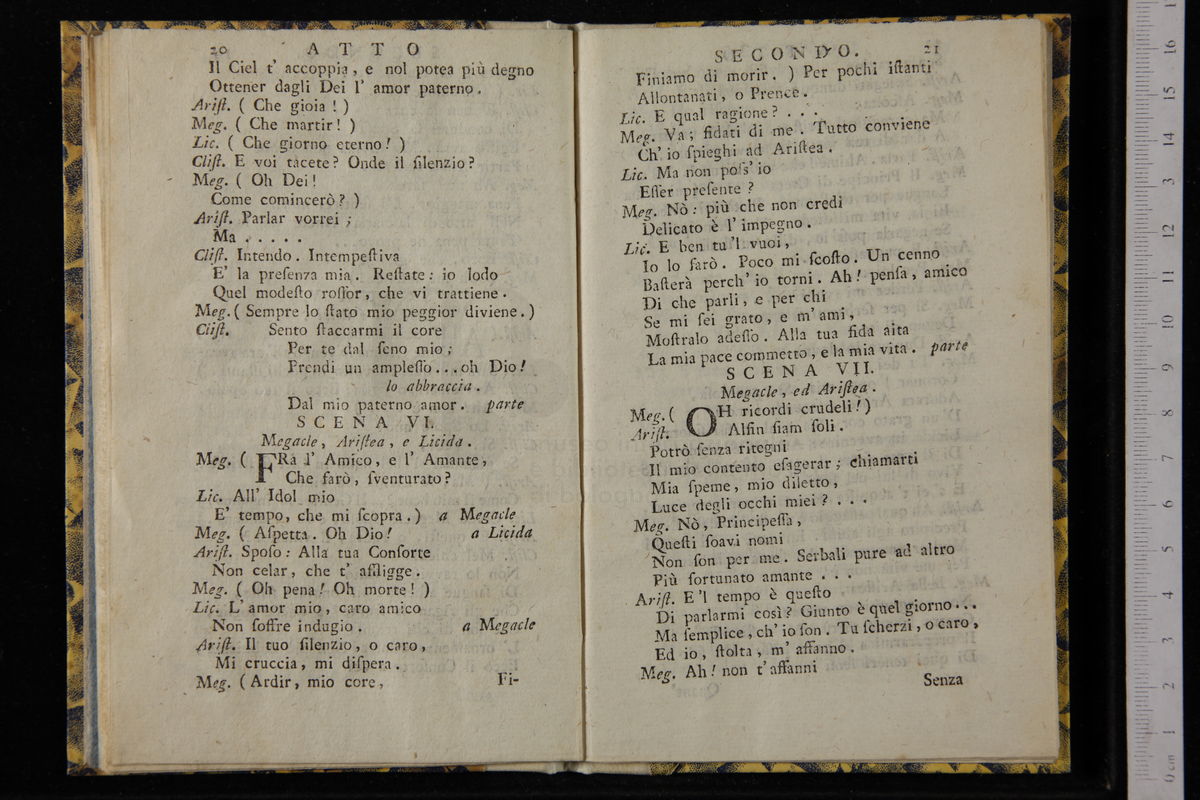 20 A T T O
Il Ciel t' accoppia, e nol potea più degno
Ottener dagli Dei l' amor paterno.
Ariſt. ( Che gioia ! )
Meg. ( Che martir! )
Lic. ( Che giorno eterno! )
Cliſt. E voi tacete? Onde il ſilenzio?
Meg. ( Oh Dei!
Come comincerò? )
Ariſt. Parlar vorrei ;
Ma . . . . .
Cliſt. Intendo. Intempeſtiva
E' la preſenza mia. Reſtate: io lodo
Quel modeſto roſſor, che vi trattiene.
Meg. ( Sempre lo ſtato mio peggior diviene. )
Cliſt. Sento ſtaccarmi il core
Per te dal ſeno mio ;
Prendi un ampleſſo...oh Dio!
lo abbraccia.
Dal mio paterno amor. parte
S C E N A VI.
Megacle, Ariſtea, e Licida.
Meg. ( FRa l' Amico, e l' Amante,
Che farò, ſventurato?
Lic. All' Idol mio
E' tempo, che mi ſcopra. ) a Megacle
Meg. ( Aſpetta. Oh Dio! a Licida
Ariſt. Spoſo: Alla tua Conſorte
Non celar, che t' affligge.
Meg. ( Oh pena! Oh morte! )
Lic. L' amor mio, caro amico
Non ſoffre indugio. a Megacle
Ariſt. Il tuo ſilenzio, o caro,
Mi cruccia, mi diſpera.
Meg. ( Ardir, mio core,
Fi-
S E C O N D O. 21
Finiamo di morir. ) Per pochi iſtanti
Allontanati, o Prence.
Lic. E qual ragione? . . .
Meg. Va; fidati di me. Tutto conviene
Ch' io ſpieghi ad Ariſtea.
Lic. Ma non poſs' io
Eſſer preſente ?
Meg. Nò: più che non credi
Delicato è l' impegno.
Lic. E ben tu 'l vuoi,
Io lo farò. Poco mi ſcoſto. Un cenno
Baſterà perch' io torni. Ah! penſa, amico
Di che parli, e per chi
Se mi ſei grato, e m' ami,
Moſtralo adeſſo. Alla tua fida aita
La mia pace commetto, e la mia vita. parte
S C E N A VII.
Megacle, ed Ariſtea.
Meg. ( OH ricordi crudeli! )
Ariſt. Alfin ſiam ſoli.
Potrò ſenza ritegni
Il mio contento eſagerar ; chiamarti
Mia ſpeme, mio diletto,
Luce degli occhi miei ? . . .
Meg. Nò, Principeſſa,
Queſti ſoavi nomi
Non ſon per me. Serbali pure ad altro
Più fortunato amante . . .
Ariſt. E'l tempo è queſto
Di parlarmi così? Giunto è quel giorno...
Ma ſemplice, ch' io ſon. Tu ſcherzi, o caro,
Ed io, ſtolta, m' affanno.
Meg. Ah! non t'affanni
Senza